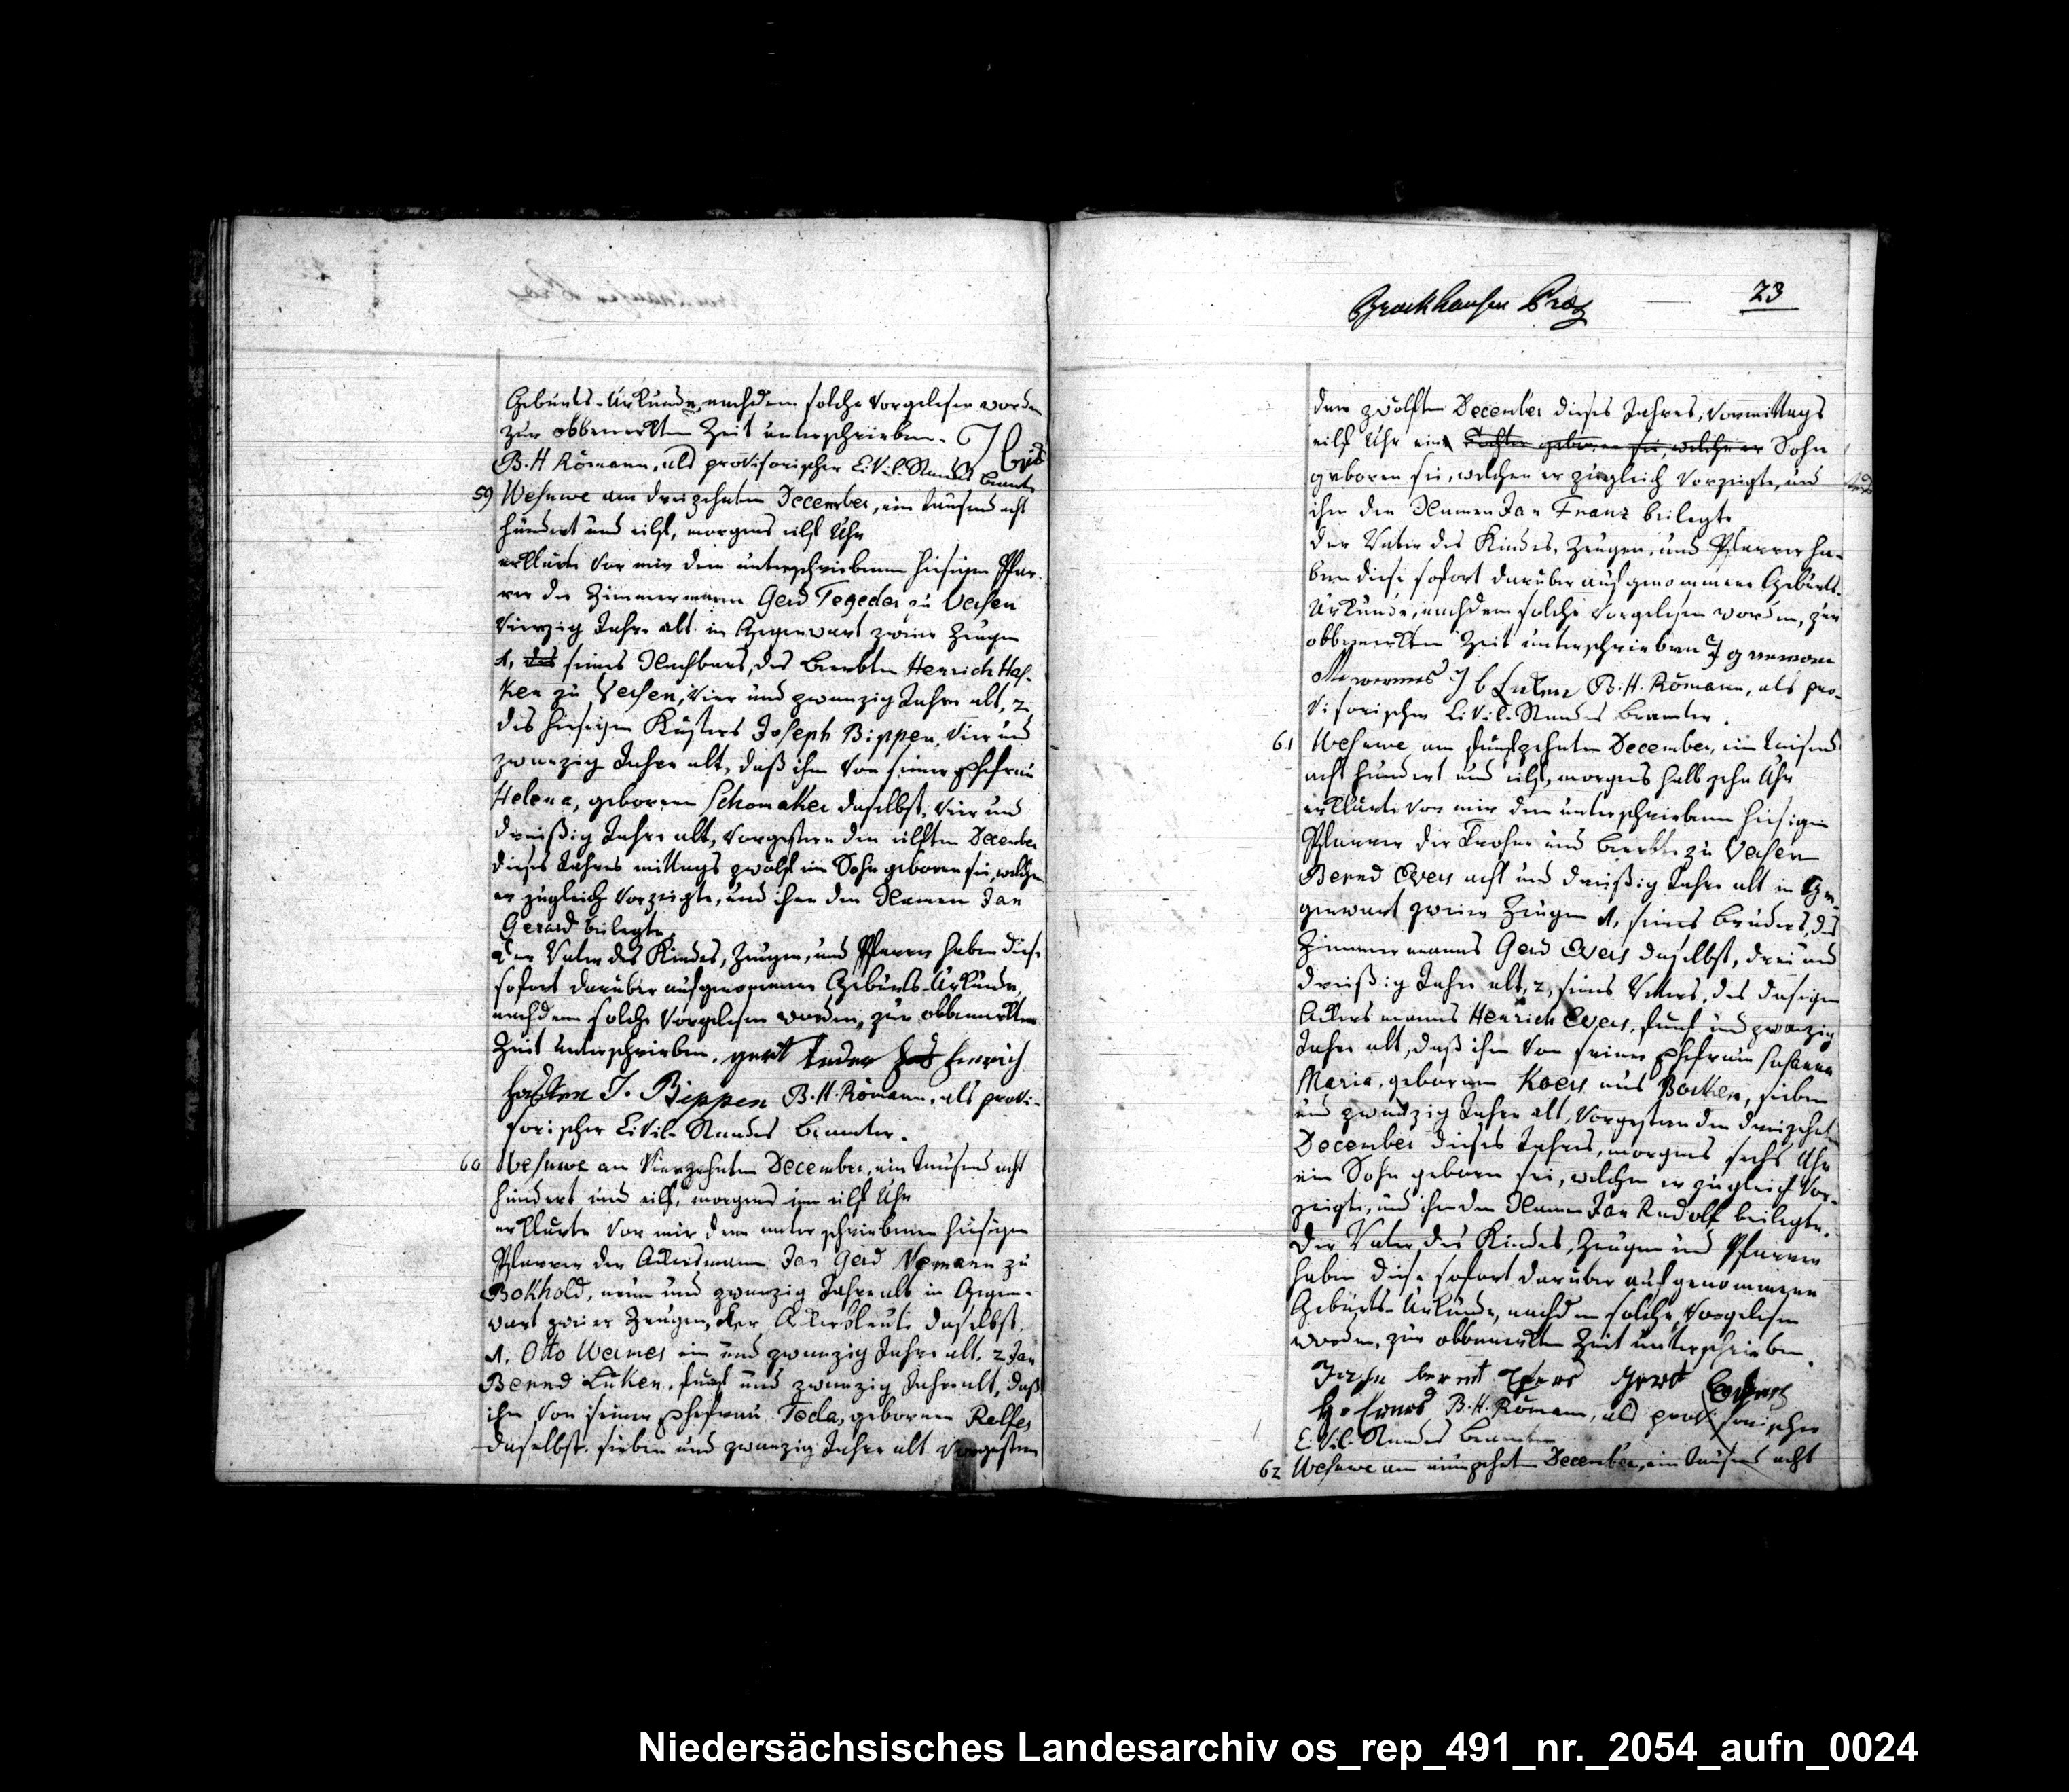 Geburts-Urkunde, nachdem solche vorgelesen worden
zur obbemerkten Zeit unterschrieben.
B. H. Römann, als provisorischer Civil-Standes Beamter
59 Wesuwe am dreizehnten December, ein tausend acht
hundert und eilf, morgens eilf Uhr
erklärte vor mir dem unterschriebenen hiesigen Pfar-
rer der Zimmermann Gerd Tegeder zu Versen
vierzig Jahre alt in Gegenwart zweier Zeugen
1, des seines Nachbars, des Beerbten Henrich Has-
ken zu Versen, vier und zwanzig Jahre alt, 2
des hiesigen Küsters Joseph Bippen, vier und
zwanzig Jahre alt, daß ihm von seiner Ehefrau
Helena, geborenen Schomaker daselbst, vier und
dreißig Jahre alt, vorgestern den eilften December
dieses Jahres mittags zwölf ein Sohn geboren sei, welchen
er zugleich vorzeigte, und ihm den Namen Jan
Gerard beilegte.
Der Vater des Kindes, Zeugen, und Pfarrer haben diese
sofort darüber aufgenommene Geburts-Urkunde,
nachdem solche vorgelesen worden, zur obbemerkten
Zeit unterschrieben. gert henrich
hasken J. Bippen B. H. Römann, als provi-
sorischer Civil-Standes Beamter.
60 Wesuwe am vierzehnten December, ein tausend acht
hundert und eilf, morgens um eilf Uhr
erklärte vor mir dem unterschriebenen hiesigen
Pfarrer der Ackersmann Jan Gerd Nomann zu
Bokhold, neun und zwanzig Jahre alt in Gegen-
wart zweier Zeugen, der Ackersleute daselbst.
1. Otto Wernes ein und zwanzig Jahre alt, 2 Jan
Bernd Lüken, fünf und zwanzig Jahre alt, daß
ihm von seiner Ehefrau Teda, geborenen Rolfes
daselbst, sieben und zwanzig Jahre alt vorgestern
Brockhausen Præs
23
den zwölften December dieses Jahres, vormittags
eilf Uhr ein Tochter geboren sei, welche er Sohn
geboren sei, welchen er zugleich vorzeigte, und
ihm den Namen Jan Franz beilegte
Der Vater des Kindes, Zeugen, und Pfarrer ha-
ben diese sofort darüber aufgenommene Geburts-
Urkunde, nachdem solche vorgelesen worden, zur
obbemerkten Zeit unterschrieben J g
wernes J b Luken B. H. Römann, als pro-
visorischer Civil-Standes Beamter.
61 Wesuwe am fünfzehnten December, ein tausend
acht hundert und eilf, morgens halb zehn Uhr
erklärte vor mir dem unterschriebenen hiesigen
Pfarrer der und Beerbte zu Versen
Bernd Evers acht und dreißig Jahre alt in Ge-
genwart zweier Zeugen 1, seines Bruders, des
Zimmermanns Gerd Evers daselbst, drei und
dreißig Jahre alt, 2, seines Vetters, des dasigen
Ackersmanns Henrich Evers, fünf und zwanzig
Jahre alt, daß ihm von seiner Ehefrau Susanna
Maria, geborenen Koers aus Borken, sieben
und zwanzig Jahre alt, vorgestern den dreizehnten
December dieses Jahres, morgens sechs Uhr
ein Sohn geboren sei, welchen er zugleich vor-
zeigte, und ihm den Namen Jan Rudolf beilegte.
Der Vater des Kindes, Zeugen und Pfarrer
haben diese sofort darüber aufgenommene
Geburts-Urkunde, nachdem solche vorgelesen
worden, zur obbemerkten Zeit unterschrieben.
bernt Evers Gert
H. Evers B. H. Römann, als provisorischer
Civil-Standes Beamter
62 Wesuwe am neunzehnten December, ein tausend acht
Niedersächsisches Landesarchiv os_rep_491_nr._2054_aufn_0024